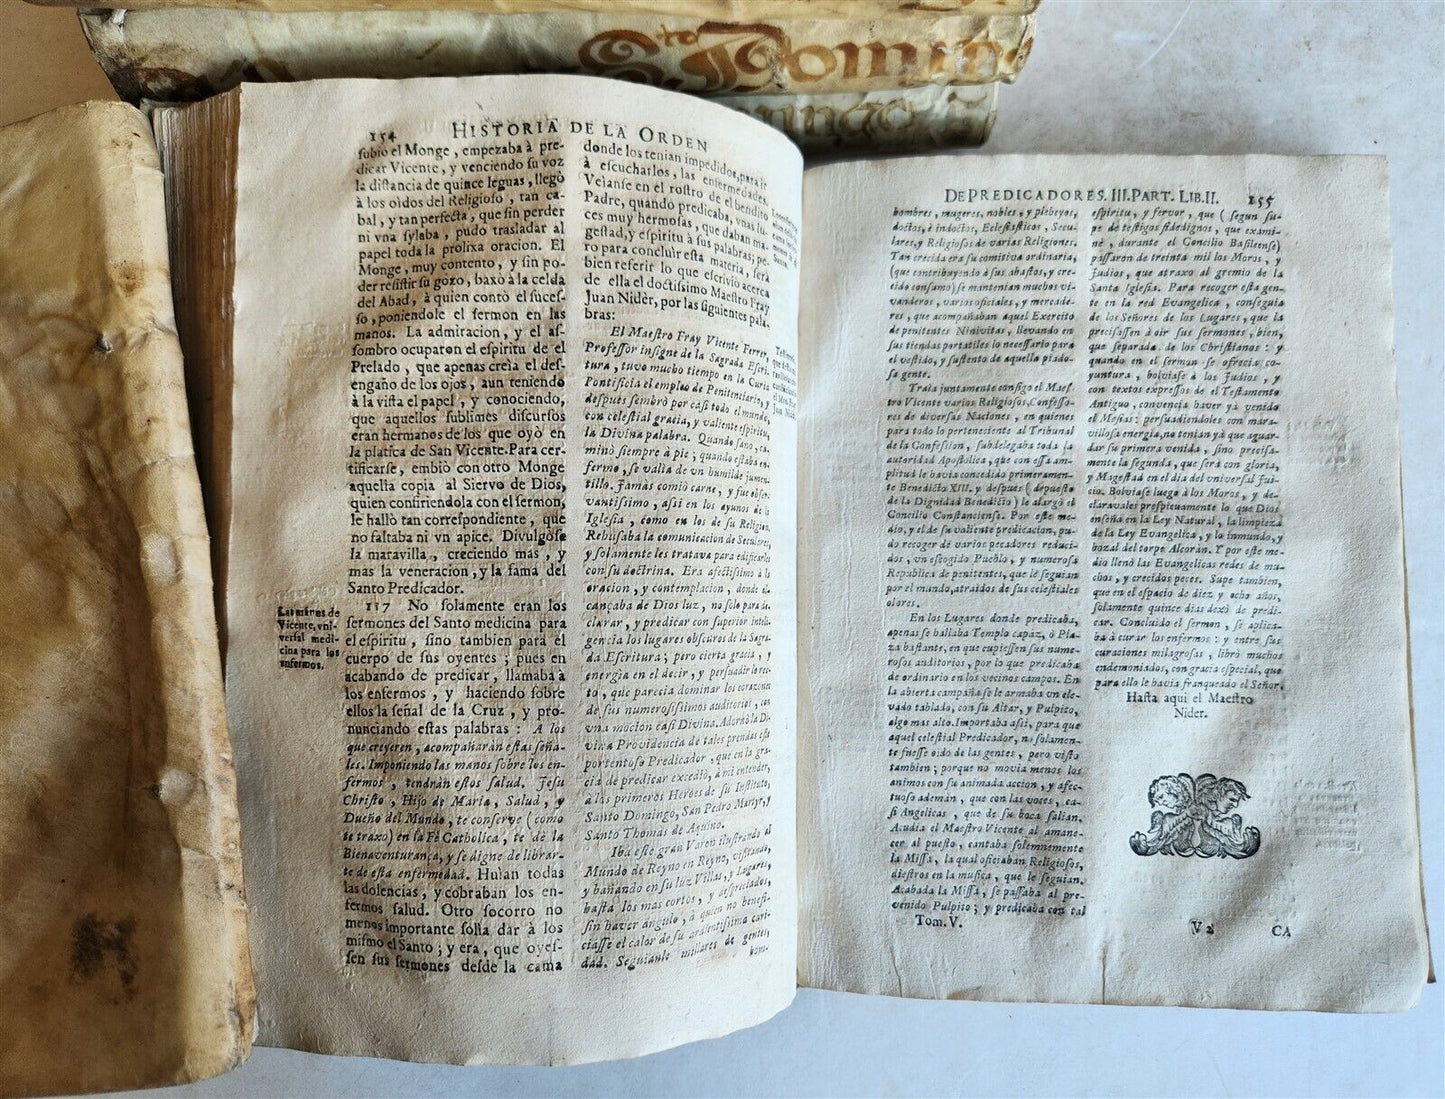 Sto Domin
mingo
154 HISTORIA DE LA ORDEN
ſubiò el Monge, empezaba à pre-
dicar Vicente, y venciendo ſu voz
la diſtancia de quince leguas, llegò
à los oìdos del Religioſo, tan ca-
bal, y tan perfecta, que ſin perder
ni vna ſylaba, pudo trasladar al
papel toda la prolixa oracion. El
Monge, muy contento, y ſin po-
der reſiſtir ſu gozo, baxò à la celda
del Abad, à quien contò el ſuceſ-
ſo, poniendole el ſermon en las
manos. La admiracion, y el aſ-
ſombro ocuparon el eſpiritu de el
Prelado, que apenas creìa el deſ-
engaño de los ojos, aun teniendo
à la viſta el papel, y conociendo,
que aquellos ſublimes diſcurſos
eran hermanos de los que oyò en
la platica de San Vicente. Para cer-
tificarſe, embiò con otro Monge
aquella copia al Siervo de Dios,
quien confiriendola con el ſermon,
le hallò tan correſpondiente, que
no faltaba ni vn apice. Divulgòſe
la maravilla, creciendo mas, y
mas la veneracion, y la fama del
Santo Predicador.
117 No ſolamente eran los
ſermones del Santo medicina para
el eſpiritu, ſino tambien para el
cuerpo de ſus oyentes; pues en
acabando de predicar, llamaba à
los enfermos, y haciendo ſobre
ellos la ſeñal de la Cruz, y pro-
nunciando eſtas palabras: A los
que creyeren, acompañaràn eſtas ſeña-
les. Imponiendo las manos ſobre los en-
fermos, tendràn eſtos ſalud. Jeſu
Chriſto, Hijo de Maria, Salud, y
Dueño del Mundo, te conſerve (como
te traxo) en la Fè Catholica, te dè la
Bienaventurança, y ſe digne de librar-
te de eſta enfermedad. Huìan todas
las dolencias, y cobraban los en-
fermos ſalud. Otro ſocorro no
menos importante ſolìa dar à los
miſmo el Santo; y era, que oyeſ-
ſen ſus ſermones deſde la cama
Las manos de
Vicente, vni-
verſal medi-
cina para los
enfermos.
donde los tenian impedidos, para ir
à eſcucharlos, las enfermedades.
Veìanſe en el roſtro de el bendito
Padre, quando predicaba, vnas lu-
ces muy hermoſas, que daban ma-
geſtad, y eſpiritu à ſus palabras; pe-
ro para concluir eſta materia, ſerà
bien referir lo que eſcriviò acerca
de ella el doctiſsimo Maeſtro Fray
Juan Nidèr, por las ſiguientes pala-
bras:
El Maeſtro Fray Vicente Ferrer,
Profeſſor inſigne de la Sagrada Eſcri-
tura, tuvo mucho tiempo en la Curia
Pontificia el empleo de Penitenciario, y
deſpues ſembrò por caſi todo el mundo,
con celeſtial gracia, y valiente eſpiritu,
la Divina palabra. Quando ſano, ca-
minò ſiempre à pie; quando eſtaba en-
fermo, ſe valìa de un humilde jumen-
tillo. Jamàs comiò carne, y fue obſer-
vantiſsimo, aſsi en los ayunos de la
Igleſia, como en los de ſu Religion.
Rehuſaba la comunicacion de Seculares,
y ſolamente les trataba para edificarles
con ſu doctrina. Era afectiſsimo à la
oracion, y contemplacion, donde al-
cançaba de Dios luz, no ſolo para de-
clarar, y predicar con ſuperior inteli-
gencia los lugares obſcuros de la Sagra-
da Eſcritura; pero cierta gracia, y
energia en el decir, y perſuadir lo rec-
to, que parecia dominar los corazones
de ſus numeroſiſsimos auditorios, con
una mocion caſi Divina. Adornò la Di-
vina Providencia de tales prendas eſte
portentoſo Predicador, que en la gra-
cia de predicar excediò, à mi entender,
à los primeros Heroes de ſu Inſtituto,
Santo Domingo, San Pedro Martyr, y
Santo Thomàs de Aquino.
Iba eſte gran Varon iluſtrando al
Mundo de Reyno en Reyno, viſitando,
y bañando en ſu luz Villas, y Lugares,
haſta los mas cortos, y deſpreciados,
ſin haver àngulo, à quien no benefi-
ciaſſe el calor de ſu ardentiſsima cari-
dad. Seguianle millares de gentes,
hom-
DE PREDICADORES. III. PART. LIB. II. 155
hombres, mugeres, nobles, y plebeyos,
doctos, è indoctos, Ecleſiaſticos, Secu-
lares, y Religioſos de varias Religiones.
Tan crecida era ſu comitiva ordinaria,
(que contribuyendo à ſus abaſtos, y cre-
cido conſumo) ſe mantenian muchos vi-
vanderos, varios oficiales, y mercade-
res, que acompañaban aquel Exercito
de penitentes Ninivitas, llevando en
ſus tiendas portatiles lo neceſſario para
el veſtido, y ſuſtento de aquella piado-
ſa gente.
Traìa juntamente conſigo el Maeſ-
tro Vicente varios Religioſos, Confeſſo-
res de diverſas Naciones, en quienes
para todo lo perteneciente al Tribunal
de la Confeſsion, ſubdelegaba toda la
autoridad Apoſtolica, que con eſſa am-
plitud le havia concedido primeramente
Benedicto XIII. y deſpues (depueſto
de la Dignidad Benedicto) le alargò el
Concilio Conſtancienſe. Por eſte me-
dio, y el de ſu valiente predicacion, pu-
do recoger de varios pecadores reduci-
dos, un eſcogido Pueblo, y numeroſa
Republica de penitentes, que le ſeguian
por el mundo, atraìdos de ſus celeſtiales
olores.
En los Lugares donde predicaba,
apenas ſe hallaba Templo capàz, ò Pla-
za baſtante, en que cupieſſen ſus nume-
roſos auditorios, por lo que predicaba
de ordinario en los vecinos campos. En
la abierta campaña ſe le armaba vn ele-
vado tablado, con ſu Altar, y Pulpito,
algo mas alto. Importaba aſsi, para que
aquel celeſtial Predicador, no ſolamen-
te fueſſe oìdo de las gentes, pero viſto
tambien; porque no movia menos los
animos con ſu animada accion, y afec-
tuoſo ademàn, que con las voces, ca-
ſi Angelicas, que de ſu boca ſalian.
Acudia el Maeſtro Vicente al amane-
cer al pueſto, cantaba ſolemnemente
la Miſſa, la qual oficiaban Religioſos,
dieſtros en la muſica, que le ſeguian.
Acabada la Miſſa, ſe paſſaba al pre-
venido Pulpito; y predicaba con tal
Tom. V.
eſpiritu, y fervor, que (ſegun ſu-
pe de teſtigos fidedignos, que exami-
nè, durante el Concilio Baſileenſe)
paſſaron de treinta mil los Moros, y
Judios, que atraxo al gremio de la
Santa Igleſia. Para recoger eſta gen-
te en la red Evangelica, conſeguia
de los Señores de los Lugares, que la
preciſaſſen à oìr ſus ſermones, bien,
que ſeparada de los Chriſtianos: y
quando en el ſermon ſe ofrecia co-
yuntura, bolviaſe à los Judios, y
con textos expreſſos del Teſtamento
Antiguo, convencia haver yà venido
el Meſsias: perſuadiendoles con mara-
villoſa energia, no tenian yà que aguar-
dar ſu primera venida, ſino preciſa-
mente la ſegunda, que ſerà con gloria,
y Mageſtad en el dia del vniverſal Jui-
cio. Bolviaſe luego à los Moros, y de-
claravales preſpicuamente lo que Dios
enſeña en la Ley Natural, la limpieza
de la Ley Evangelica, y lo inmundo, y
bozal del torpe Alcoràn. Y por eſte me-
dio llenò las Evangelicas redes de mu-
chos, y crecidos peces. Supe tambien,
que en el eſpacio de diez y ocho años,
ſolamente quince dias dexò de predi-
car. Concluìdo el ſermon, ſe aplica-
ba à curar los enfermos: y entre ſus
curaciones milagroſas, librò muchos
endemoniados, con gracia eſpecial, que
para ello le havia franqueado el Señor.
Haſta aqui el Maeſtro
Nider.
V 2 CA